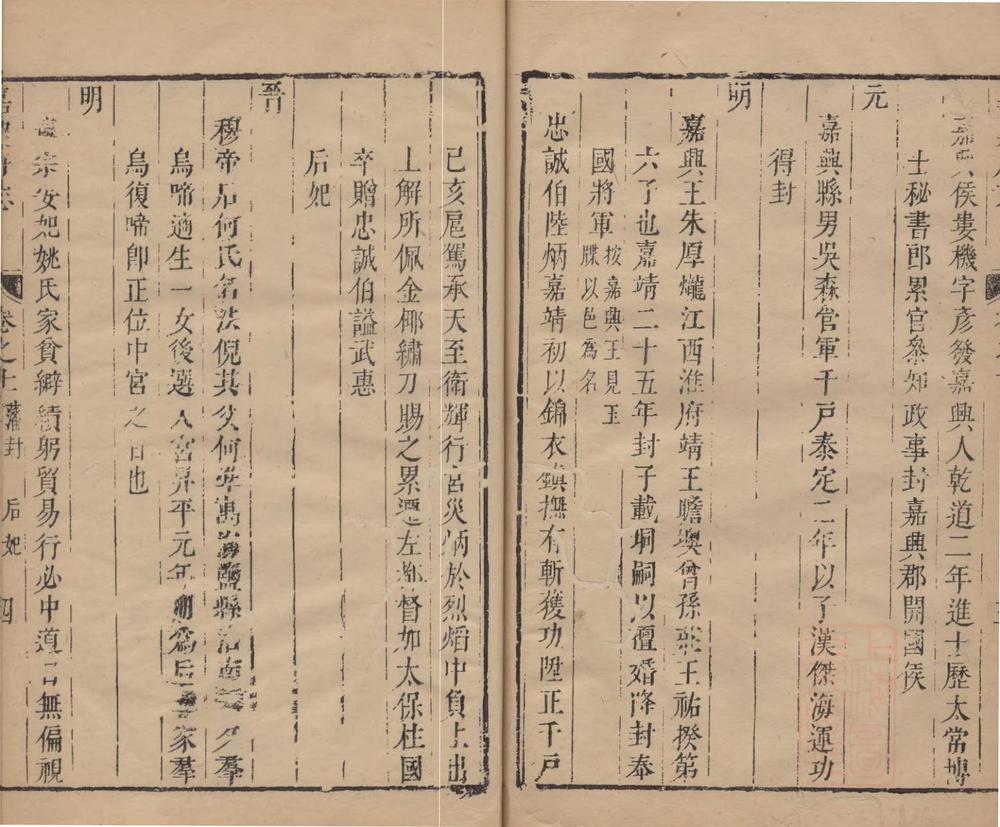 嘉興侯婁機字彥發嘉興人乾道二年進士歷太常博
士秘書郎累官參知政事封嘉興郡開國侯
元
嘉興縣男吳森官軍千戶泰定二年以子漢傑海運功
得封
明
嘉興王朱厚爖江西淮府靖王瞻墺曾孫王祐揆第
六子也嘉靖二十五年封子載坰嗣以擅婚降封奉
國將軍按嘉興王見玉
牒以邑爲名
忠誠伯陸炳嘉靖初以錦衣鎮撫有斬獲功陞正千戶
己亥扈駕承天至衛輝行宮災炳於烈熖中負上出
上解所佩金瓠繡刀賜之累遷左都督加太保柱國
卒贈忠誠伯謚武惠
后妃
晉
穆帝后何氏名法倪其父何準寓海鹽縣治南一夕羣
烏啼適生一女後選入宮昇平元年冊爲后家羣
烏復啼即正位中宮之日也
明
宗安妃姚氏家貧績躬貿易行必中道目無偏視
嘉興府志
卷之十 藩封 后妃 四